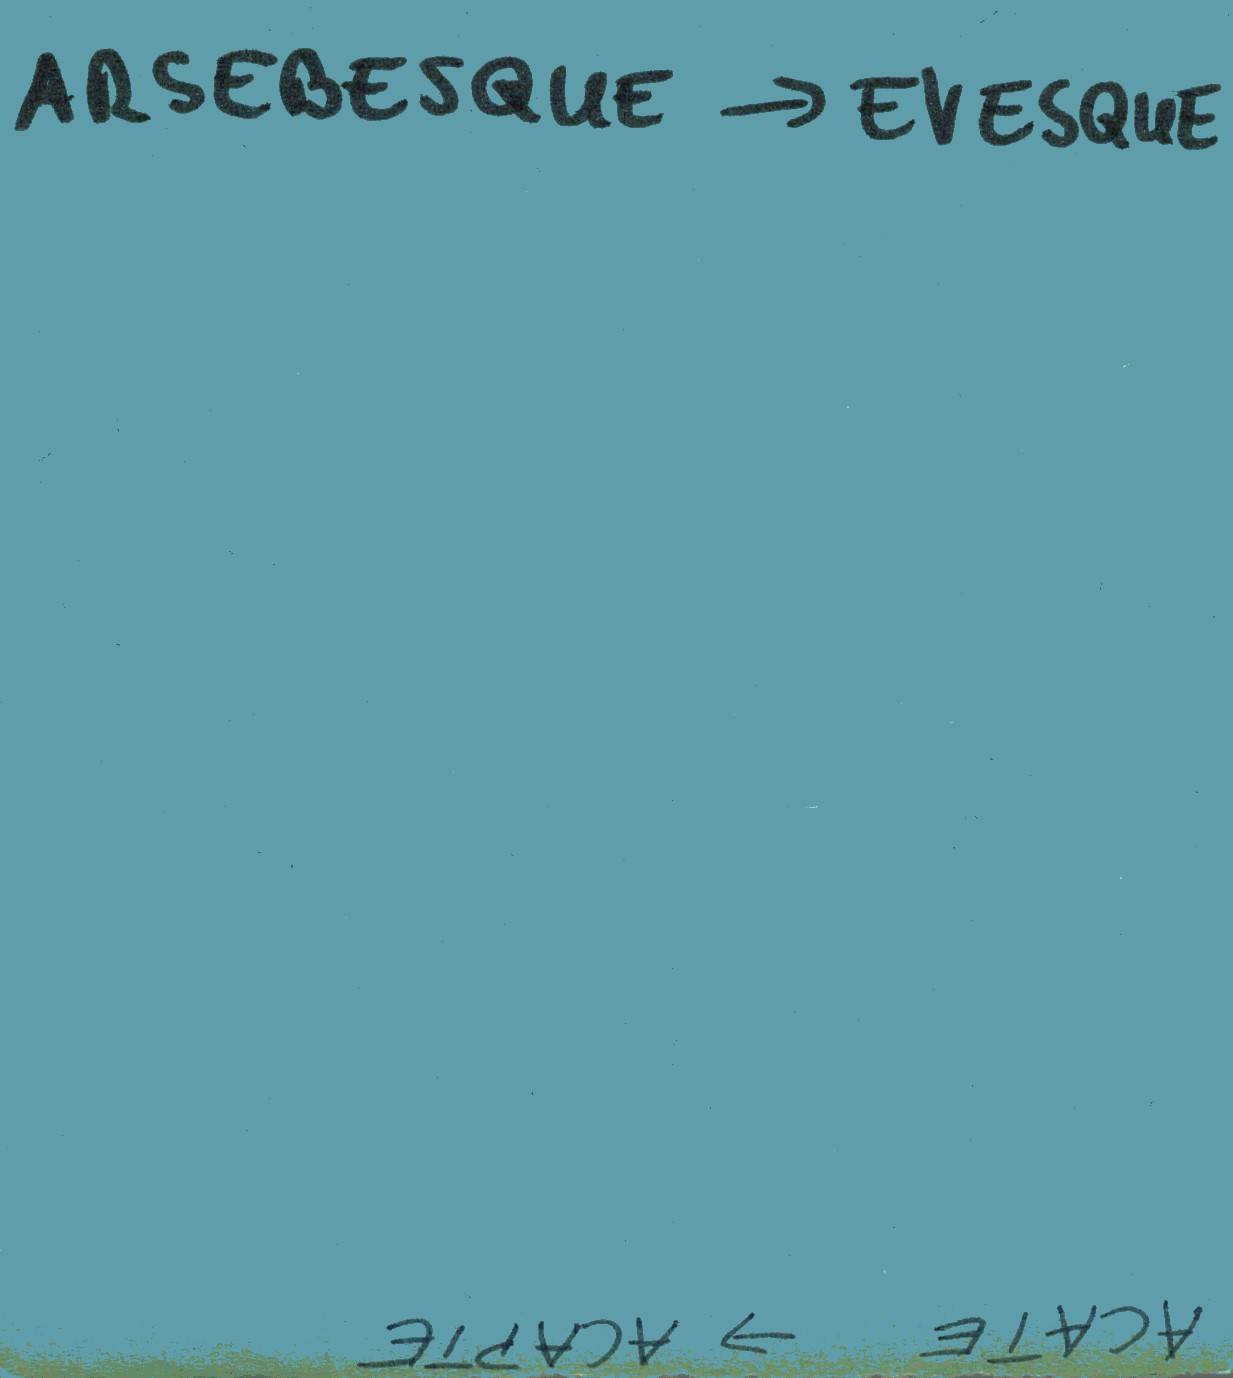 ARSEBESQUE → EVESQUE
ACATE → ACAPTE